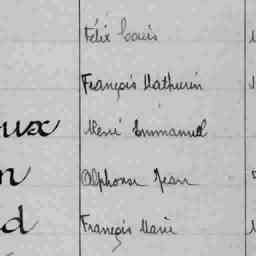 Félix Louis
François Mathurin
ux René Emmanuel
n Alphonse Jean
d François Marie